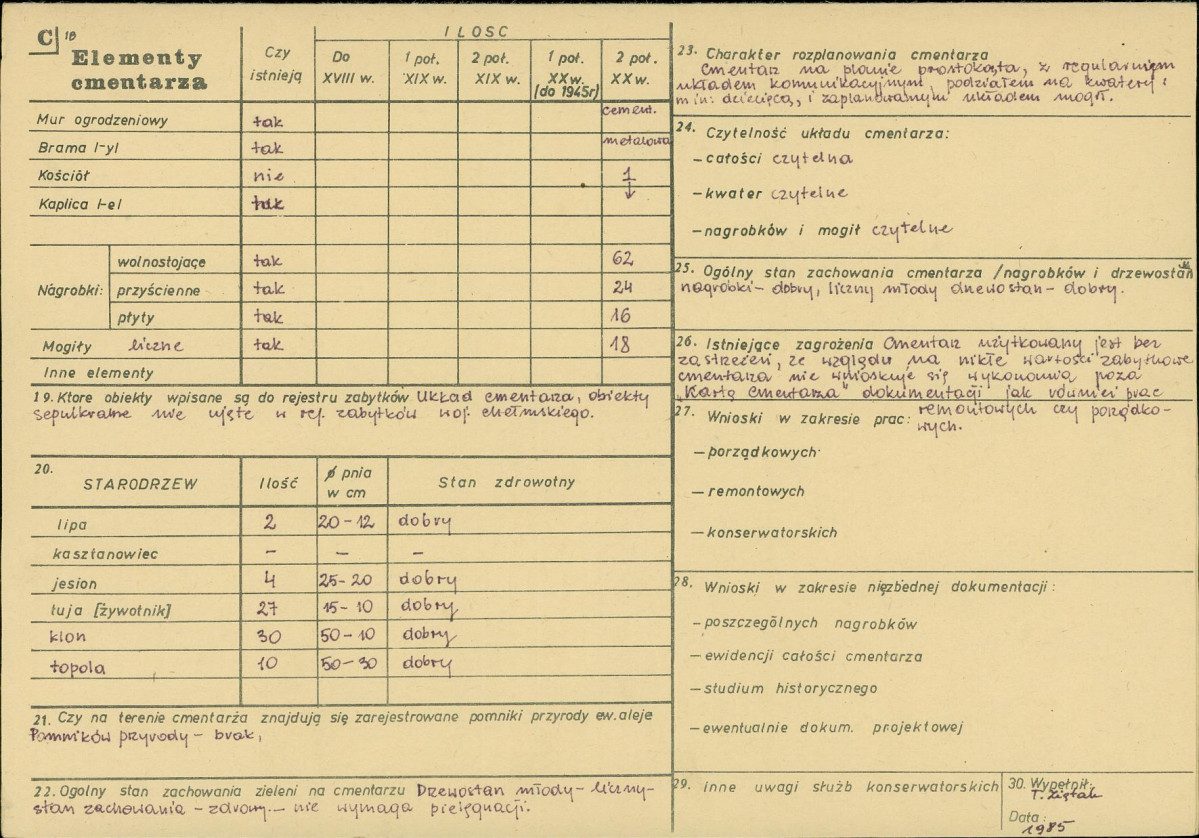 C 18
Elementy cmentarza
Czy istnieją
ILOSC
Do XVIII w.
1 poł. XIX w.
2 poł. XIX w.
1 poł. XX w. (do 1945r)
2 poł. XX w.
Mur ogrodzeniowy tak cement.
Brama l-yl tak metalowa
Kościół nie 1
Kaplica l-el tak
Nagrobki: wolnostojące tak 62
przyścienne tak 24
płyty tak 16
Mogiły liczne tak 18
Inne elementy
19. Ktore obiekty wpisane są do rejestru zabytków Układ cmentarza, obiekty
sepulkralne nie ujęte w rej. zabytków woj. chełmskiego.
20.
STARODRZEW Ilość ø pnia w cm Stan zdrowotny
lipa 2 20-12 dobry
kasztanowiec – – –
jesion 4 25-20 dobry
tuja [żywotnik] 27 15-10 dobry
klon 30 50-10 dobry
topola 10 50-30 dobry
21. Czy na terenie cmentarza znajdują się zarejestrowane pomniki przyrody ew. aleje
Pomników przyrody – brak,
22. Ogolny stan zachowania zieleni na cmentarzu Drzewostan młody – liczny –
stan zachowania – zdrowy – nie wymaga pielęgnacji.
23. Charakter rozplanowania cmentarza
Cmentarz na planie prostokąta, z regularnym
układem komunikacyjnym, podziałem na kwatery:
m in: dziecięcą, i zaplanowanym układem mogił.
24. Czytelność układu cmentarza:
– całości czytelna
– kwater czytelne
– nagrobków i mogił czytelne
25. Ogólny stan zachowania cmentarza /nagrobków i drzewostan
nagrobki – dobry, liczny młody drzewostan – dobry.
26. Istniejące zagrożenia Cmentarz użytkowany jest bez
zastrzeżeń, ze względu na nikłe wartości zabytkowe
cmentarza nie wnioskuje się wykonania poza
„Kartą Cmentarza" dokumentacji jak również prac
remontowych czy porządko-
wych.
27. Wnioski w zakresie prac:
– porządkowych
– remontowych
– konserwatorskich
28. Wnioski w zakresie niezbędnej dokumentacji:
– poszczególnych nagrobków
– ewidencji całości cmentarza
– studium historycznego
– ewentualnie dokum. projektowej
29. Inne uwagi służb konserwatorskich
30. Wypełnił:
T. Ziętak
Data:
1985